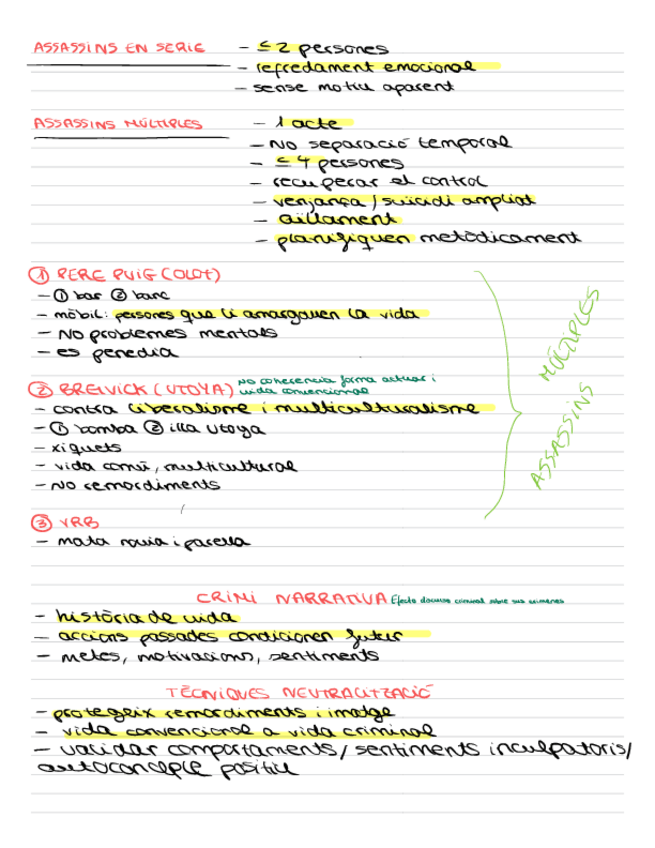 ASSASSINS EN SERIE - ≤ 2 persones
- refredament emocional
- sense motiu aparent
ASSASSINS MÚLTIPLES - 1 acte
- No separació temporal
- ≤ 4 persones
- recuperar el control
- venjança / suicidi ampliat
- aïllament
- planifiquen metòdicament
① PERE PUIG (OLOT)
- ① bar ② banc
- mòbil: persones que li amargauen la vida
- No problemes mentals
- es penedia
② BREIVICK (UTOYA) No coherencia forma actuar i
vida convencional
- contra liberalisme i multiculturalisme
- ① bomba ② illa Utoya
- xiquets
- vida comú, multicultural
- No remordiments
ASSASSINS MÚLTIPLES
③ YRB
- mata novia i parella
CRIMI NARRATIVA Efecte discurs criminal sobre sus crímenes
- història de vida
- accions passades condicionen futur
- metes, motivacions, sentiments
TÈCNIQUES NEUTRALITZACIÓ
- protegeix remordiments i imatge
- vida convencional a vida criminal
- validar comportaments/ sentiments inculpatoris/
autoconcepte positiu